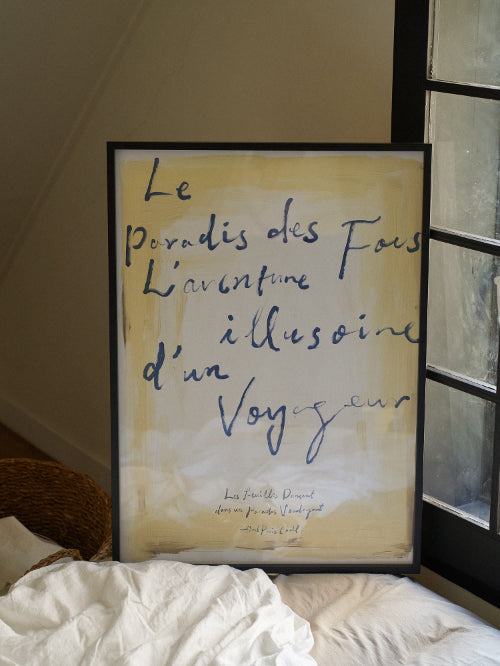 Le
paradis des Fous
L'aventure
illusoire
d'un
Voyageur
Les feuilles Dansent
dans un paradis